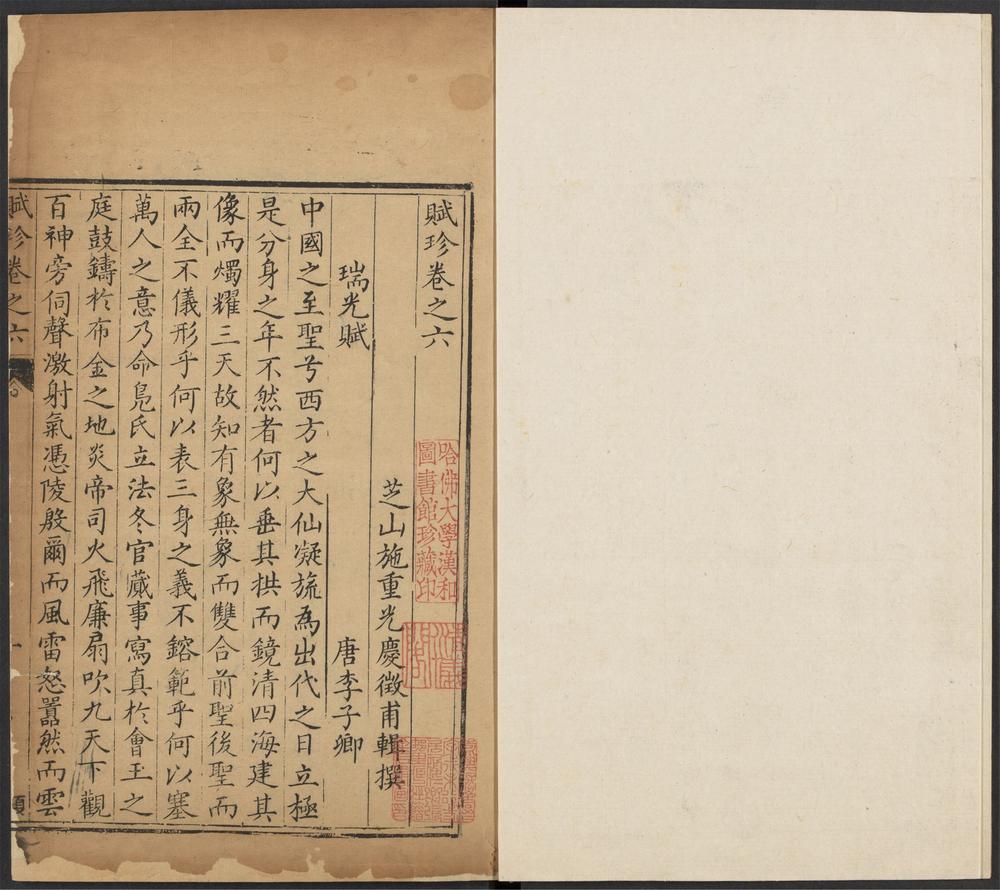 賦珍卷之六
芝山施重光慶徵甫輯撰
瑞光賦
唐李子卿
中國之至聖兮西方之大仙凝旒為出代之日立極
是分身之年不然者何以垂其拱而鏡清四海建其
像而燭耀三天故知有象無象而雙合前聖後聖而
兩全不儀形乎何以表三身之義不鎔範乎何以塞
萬人之意乃命鳧氏立法冬官蕆事寫真於會王之
庭鼓鑄於布金之地炎帝司火飛廉扇吹九天下觀
百神旁伺聲激射氣憑陵殷爾而風雷怒嚣然而雲
賦珍卷之六
一
哈佛大學漢和
圖書館珍藏印